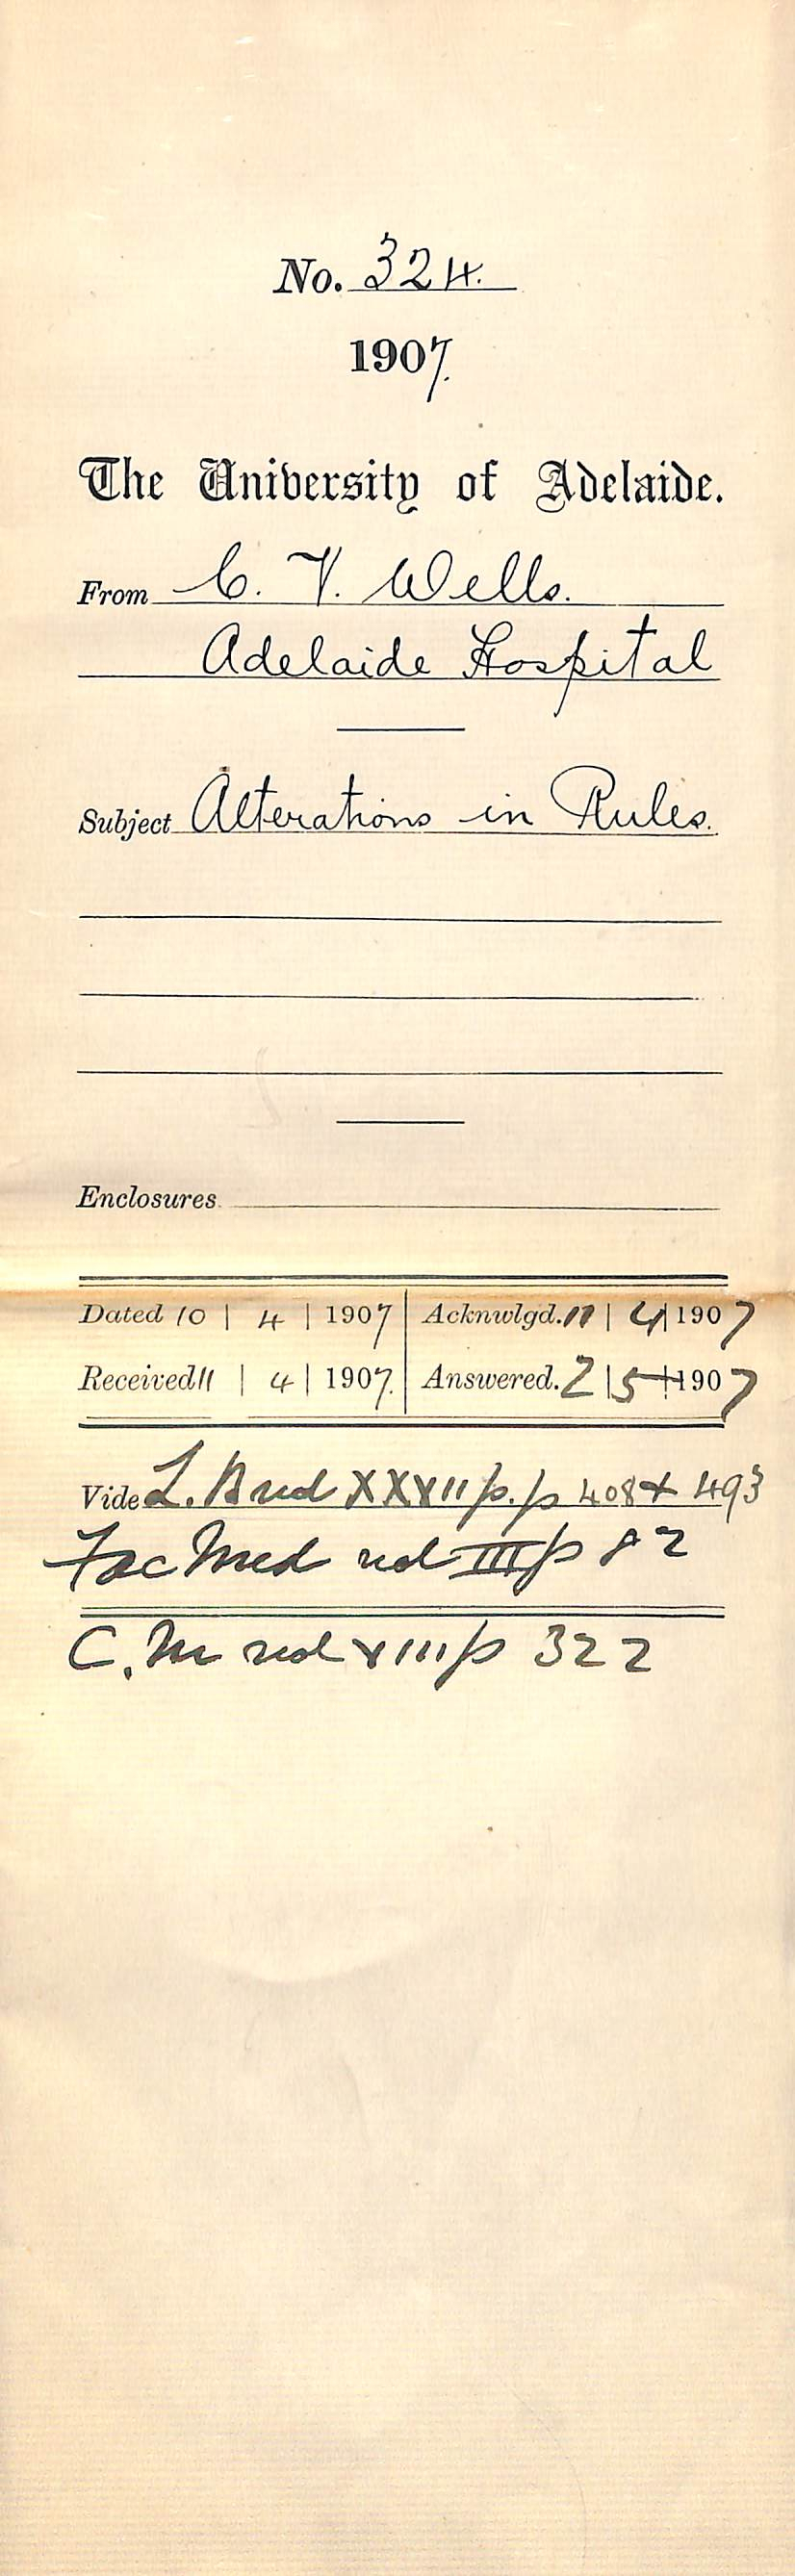 No. 324.
1907.
The University of Adelaide.
From C. V. Wells.
Adelaide Hospital
Subject Alterations in Rules.
Enclosures
Dated 10 | 4 | 1907 Acknwlgd. 11 | 4 | 1907
Received 11 | 4 | 1907. Answered. 2 | 5 | 1907
Vide L.B vol XXXII p.p 408 & 493
Fac Med vol III p 82
C.M vol XIII p 322